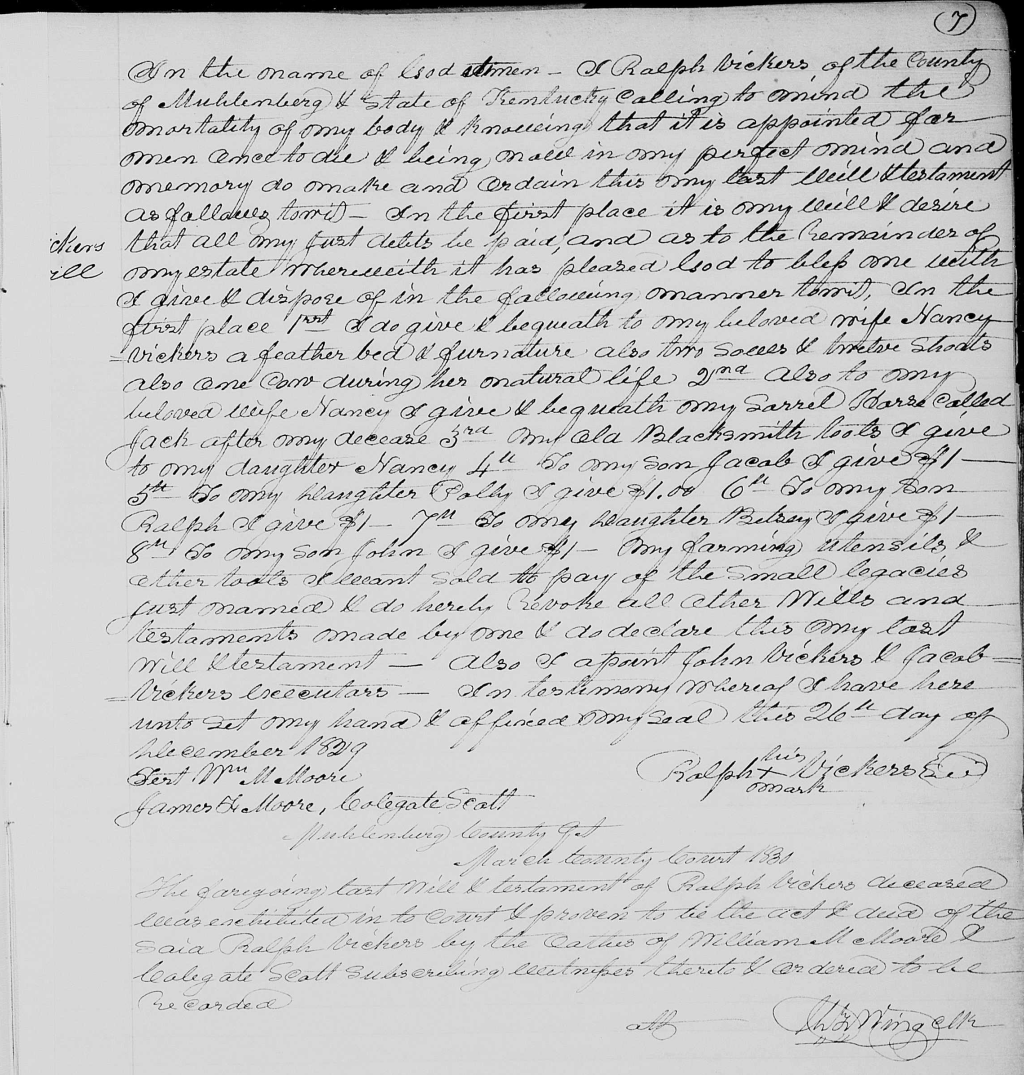 7
In the name of God Amen – I Ralph Vickers of the County
of Muhlenberg & State of Kentucky calling to mind the
mortality of my body & knowing that it is appointed for
men once to die & being now in my perfect mind and
memory do make and ordain this my last will & testament
as follows, towit – In the first place it is my will & desire
ckers
that all my just debts be paid, and as to the Remainder of
ill
my estate wherewith it has pleased God to bless me with
I give & dispose of in the following manner towit, In the
first place 1rst I do give & bequeath to my beloved wife Nancy
Vickers a feather bed & furnature also two sowes & twelve Shoats
also one Cow during her natural life 2nd Also to my
beloved wife Nancy I give & bequeath my Sarrel Horse Called
Jack after my decease 3rd My Old Blacksmith tools I give
to my daughter Nancy 4th To my son Jacob I give $1 –
5th To my Daughter Polly I give $1.00 6th To my Son
Ralph I give $1 – 7th To my Daughter Betsey I give $1 –
8th To my son John I give $1 – My farming utensils &
other tools I want sold to pay of the small legacies
just named & do hereby Revoke all other Wills and
testaments made by me & do declare this my last
will & testament – Also I apoint John Vickers & Jacob
Vickers executors – In testimony whereof I have here
unto set my hand & affixed my seal this 26th day of
December 1829
Test Wm M Moore
his
Ralph x Vickers
mark
James Moore, Colegate Scott
Muhlenburg County Sct
March County Court 1830
The foregoing last Will & testament of Ralph Vickers deceased
was exhibited in to Court & proven to be the act & deed of the
said Ralph Vickers by the Oathes of William M Moore &
Colegate Scott Subscribing witnesses thereto & ordered to be
Recorded
att
Wing clk